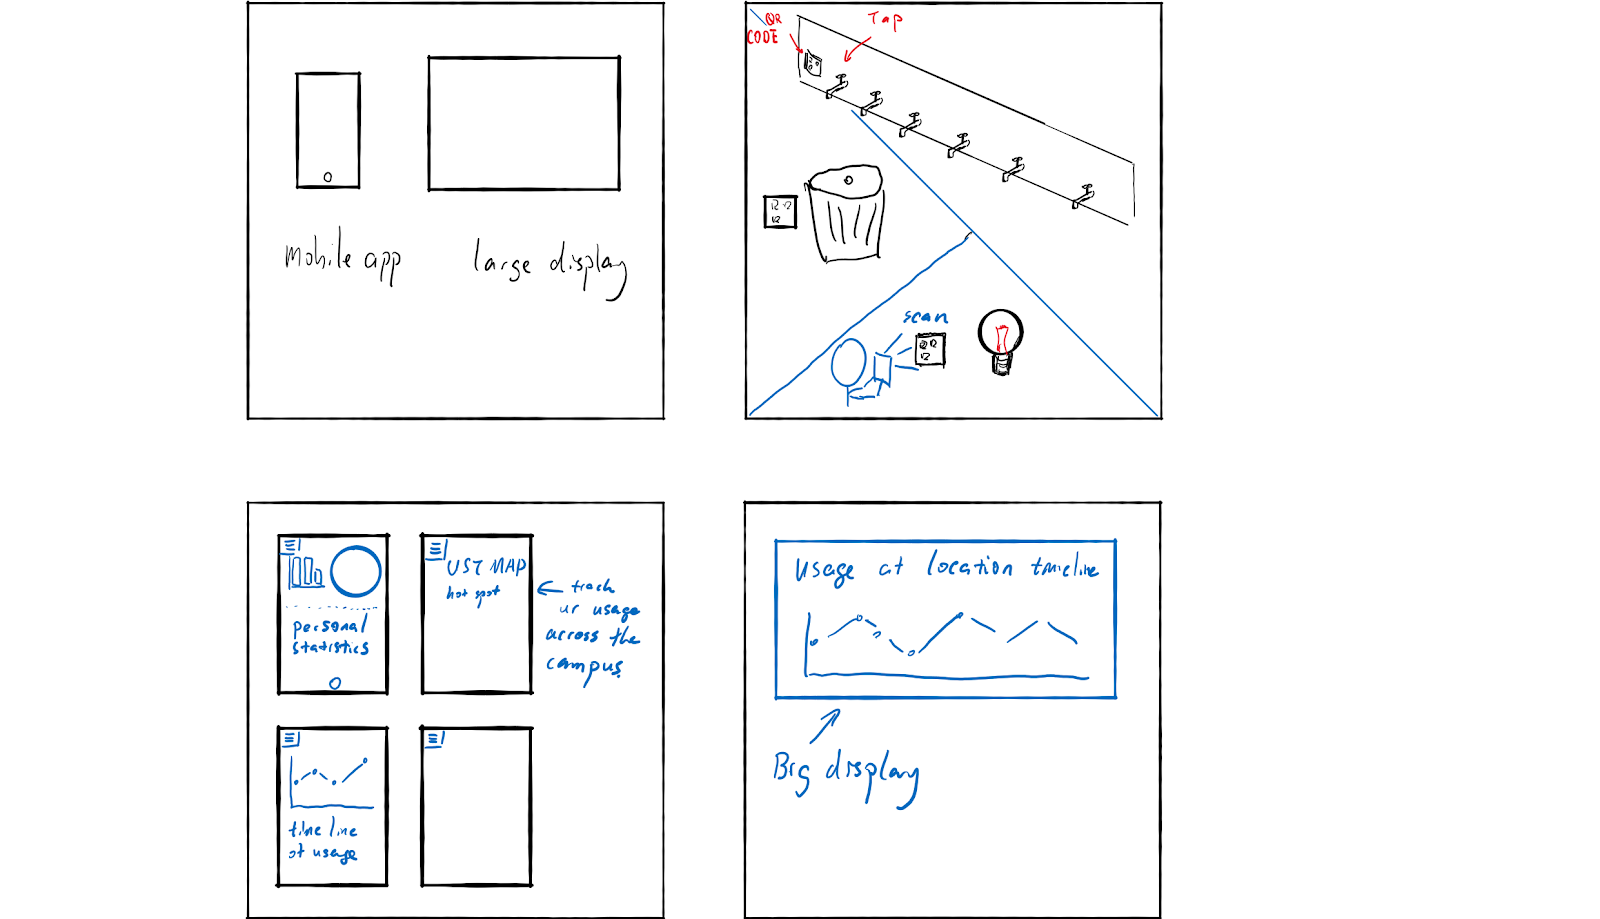 mobile app
large display
QR
CODE
Tap
scan
personal
statistics
UST MAP
hot spot
track
ur usage
across the
campus.
time line
of usage
usage at location timeline
Big display